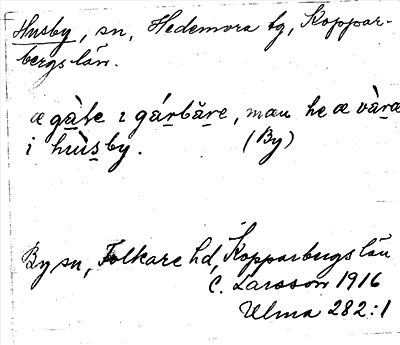 Husby, sn, Hedemora tg, Koppar-
bergs län.
æ gàt̲e ı gár̲băr̲e, man he æ vàr̲a
i hùs̲by. (By)
By sn, Folkare hd, Kopparbergs län
C. Larsson 1916
Ulma 282:1